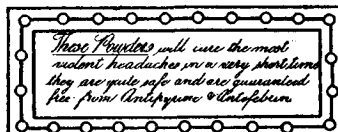 These Powders will cure the most
violent headaches in a very short time
they are quite safe and are guaranteed
free from Antipyrine & Antefebrin